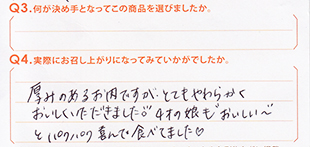 Q3.何が決め手となってこの商品を選びましたか。
Q4.実際にお召し上がりになってみていかがでしたか。
厚みのあるお肉ですが、とてもやわらかく
おいしくいただきました!! 4才の娘も"おいしい〜
とパクパク喜んで食べてました♡